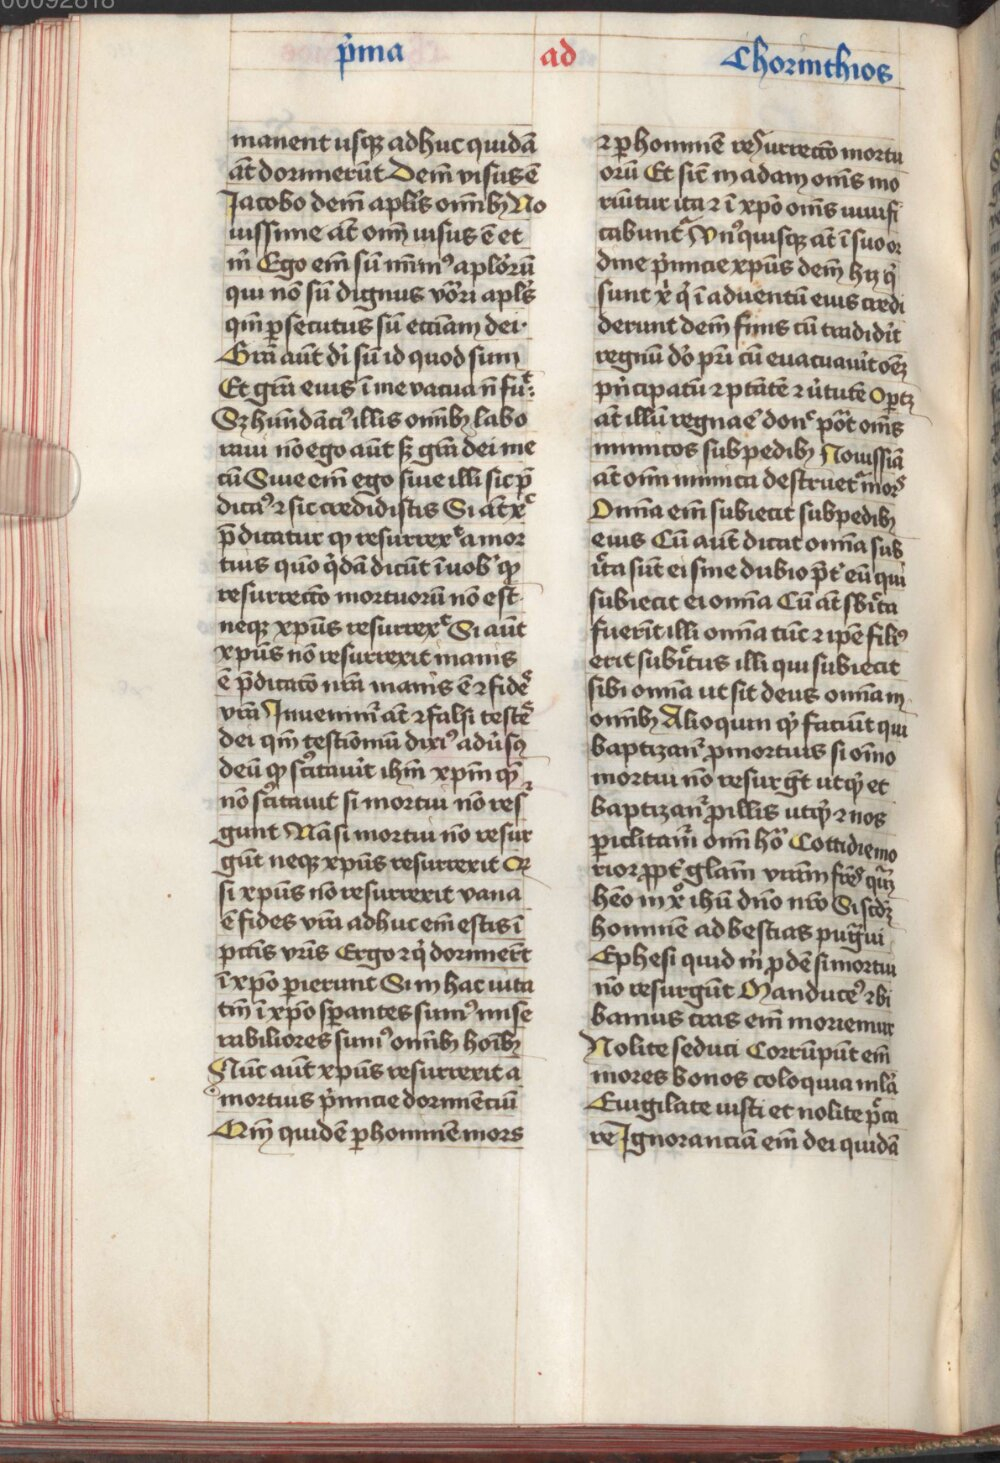 00092818
p̾ma ad Chorinthios
manent usqꝫ adhuc quidā
aūt dormierūt Dem̄ visus ē
Jacobo dem̄ apl̄is om̄ibꝫ No
uissime aūt om̄ visus ē et
m̄ Ego em̄ sū mīm᷒ apl̄orū
qui nō sū dignus vōri apl̄s
qm̄ ꝑsecutus sū ecciam dei
Gr̄a aūt dī sū id quod sum
Et gr̄a eius ī me vacua n̄ fuͭ
Sꝫ hundāci᷒ illis om̄ibꝫ labo
raui nō ego aūt sꝫ gr̄a dei me
cū Siue em̄ ego siue illi sic p̄
dica᷒ ⁊ sic credidistis Si aūt xͨ
p̄dicatur qꝫ resurrexͭ a mor
tuis quō q̇dā dicūt ī uob̄ qꝫ
resurreccō mortuorū nō est
neqꝫ xp̄us resurrexͭ Si aūt
xp̄us nō resurrexit inanis
ē p̄dicacō nr̄a inanis ē ⁊ fideˢ
vr̄a Inuenim᷒ aūt ⁊ falsi testeˢ
dei qm̄ testīomū dixi᷒ adūsꝯ
deū qꝫ sc̄itauit ihm̄ xp̄m qꝫ
nō sc̄itauit si mortui nō res͛
gunt Nā si mortui nō resur
gūt neqꝫ xp̄us resurrexit Qꝫ
si xp̄us nō resurrexit vana
ē fides vr̄a adhuc em̄ estis ī
pctīs vr̄is Ergo ⁊ q̇ dormiert̄
ī xp̄o perierunt Si in hac uita
tm̄ ī xp̄o sperantes sum᷒ mise
rabiliores sum᷒ om̄ibꝫ hoībꝫ
Nūc aūt xp̄us resurrexit a
mortuis p̾micie dormiēciū
Qm̄ quidē ꝑ hominē mors
⁊ ꝑ hominē resurreccō mortu
orū Et sic̄ in adam om̄s mo
riūtur ita ⁊ ī xp̄o om̄s uiuifi
cabunt᷑ Vn᷒quisqꝫ aūt ī suo or
dine p̾micie xp̄us dem̄ hij q̇
sunt xᷤ q̇ ī aduentū eius credi
derunt dem̄ finis cū tradid̾it
regnū dō pr̄i cū euacuau̾it oēꝫ
p̾ncipatū ⁊ ptātē ⁊ u̾tutē Oportꝫ
aūt illū regnar̄ donͨ poāt om̄s
inimicos sub pedibꝫ Nouissīa
aūt om̄ inimica destruet᷑ morˢ
Omnia em̄ subiecit sub pedibꝫ
eius Cū aūt dicat omnia sub
iͨta sūt ei sine dubio p̄t̾ eū qui
subiecit ei omnia Cū aūt sb̾iͨta
fuerīt illi omnia tūc ⁊ ip̄e fili᷒
erit subiͨtus illi qui subiecit
sibi omnia ut sit deus omnia in
om̄ibꝫ Alioquin qͥd faciūt qui
baptizant᷑ ꝓ mortuis si om̄ō
mortui nō resurgūt utqͥd et
baptizant᷑ ꝓ illis utqͥd ⁊ nos
ꝑiclitam᷑ om̄i hōᷓ Cottidie mo
rior ꝓpt̾ glām vrām fr̄es quāꝫ
hēo in xᷤ ihū dn̄o nr̄o Si scd̄ꝫ
hominē ad bestias pugᷓui
Ephesi quid m̄ ꝓdē si mortui
nō resurgūt Manduce᷒ ⁊ bi
bamus cras em̄ moriemur
Nolite seduci Corrūpūt em̄
mores bonos coloquia mlᷓa
Euigilate iusti et nolite pͨca
re Ignoranciā em̄ dei quidā